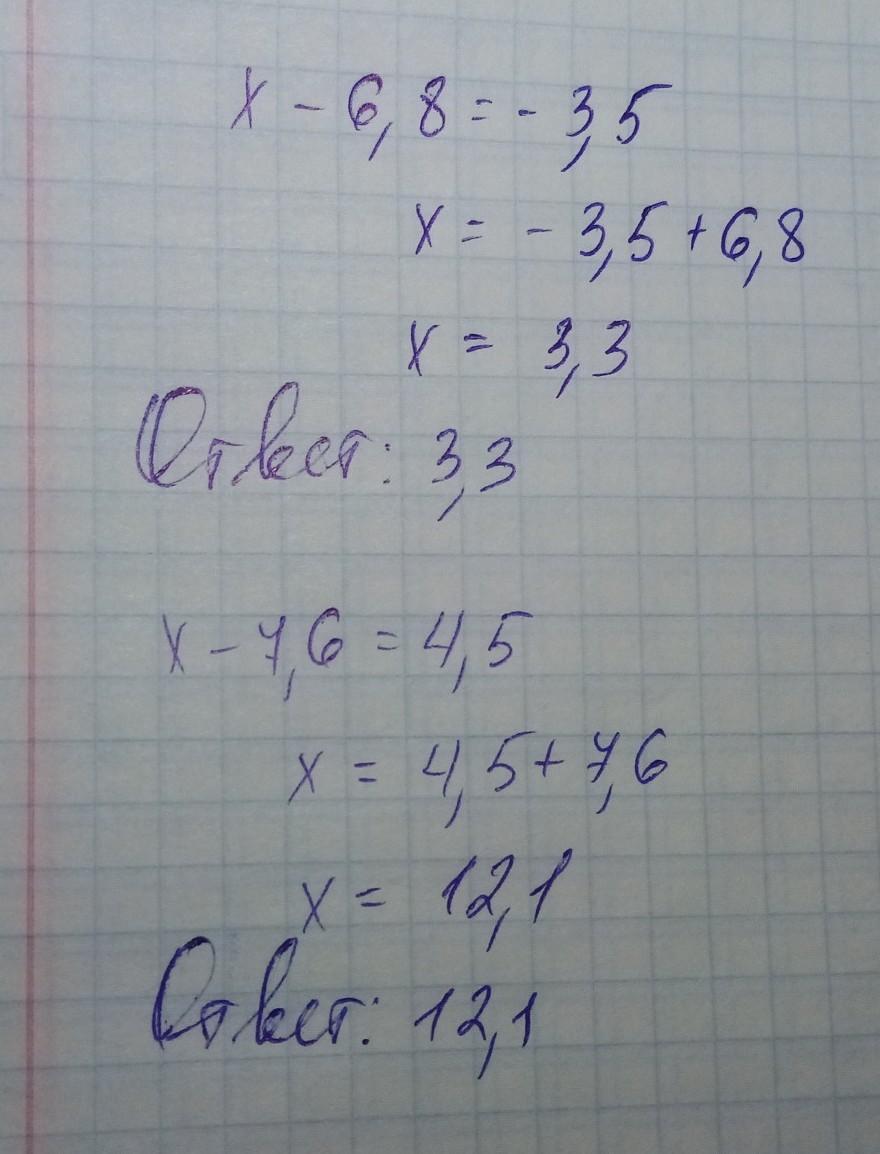 x - 6,8 = - 3,5
x = - 3,5 + 6,8
x = 3,3
Ответ: 3,3
x - 7,6 = 4,5
x = 4,5 + 7,6
x = 12,1
Ответ: 12,1